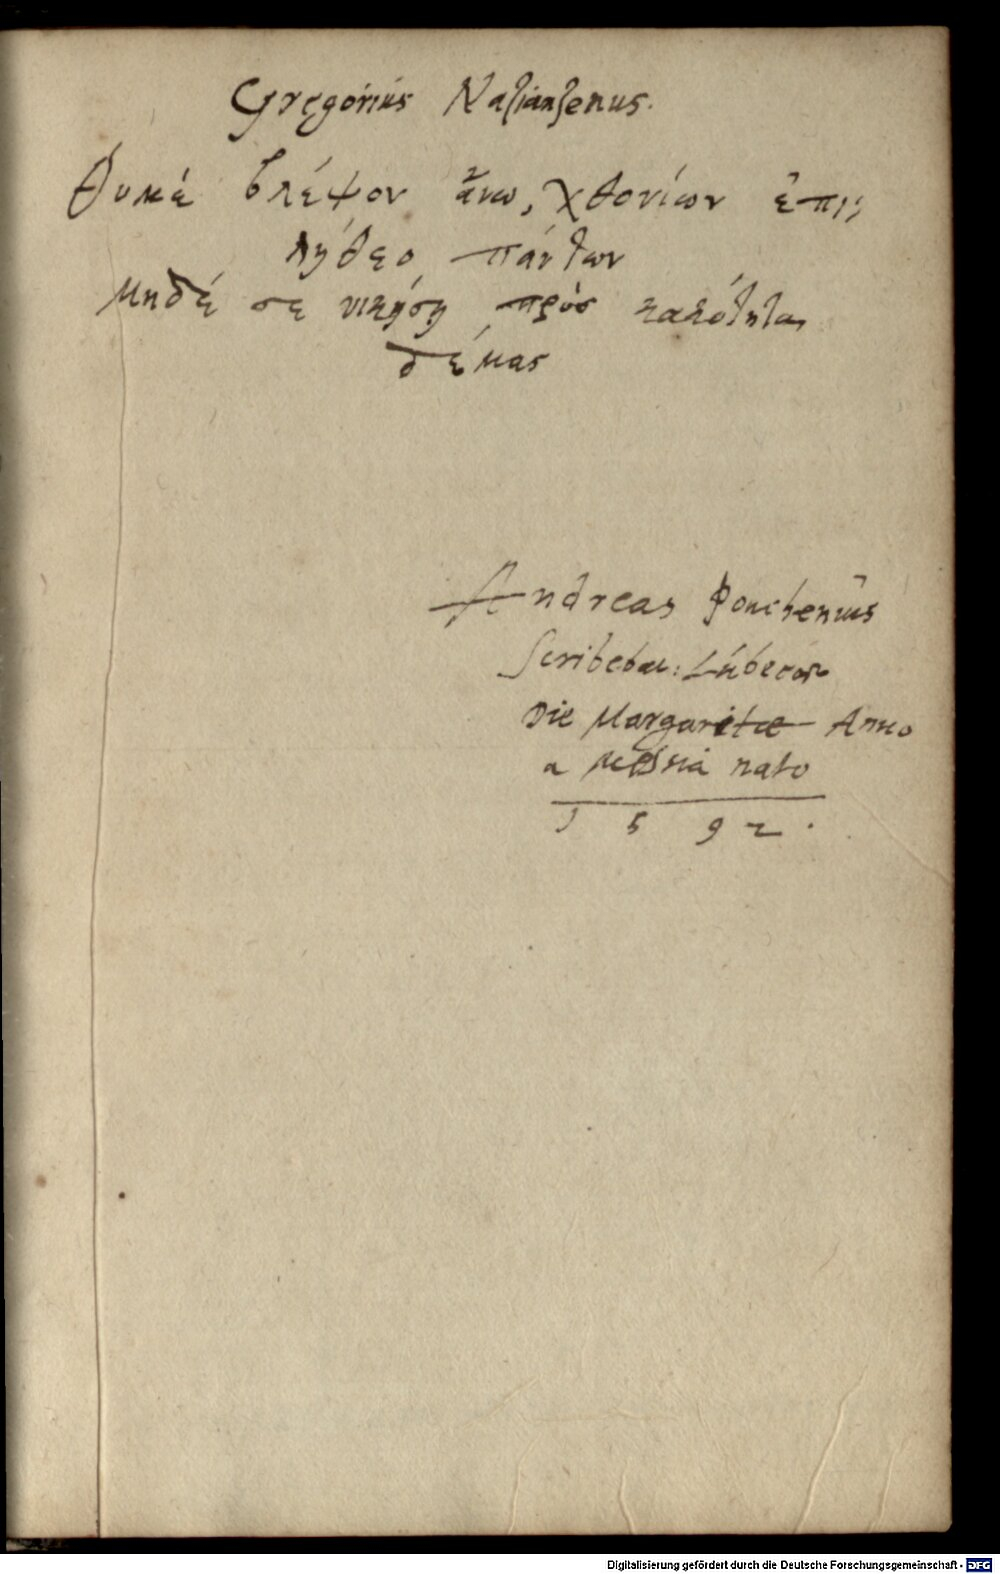 Gregorius Nazianzenus.
Θυμέ βλέψον ἄνω, χθονίων ἐπι-
λήθεο πάντων
μηδέ σε νικήσῃ πρὸς κακότητα
δέμας
Andreas Pouchenius
Scribebat Lubecae
Die Margaritae Anno
a Messia nato
1592.
Digitalisierung gefördert durch die Deutsche Forschungsgemeinschaft - DFG